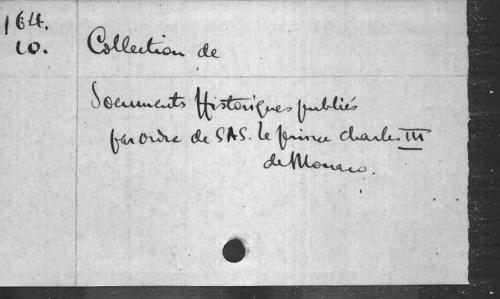 164.
10.
Collection de
Documents Historiques publiés
par ordre de S.A.S. le prince Charles III
de Monaco.